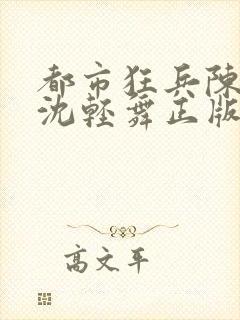 都市狂兵陳
沈輕舞正版
高文平